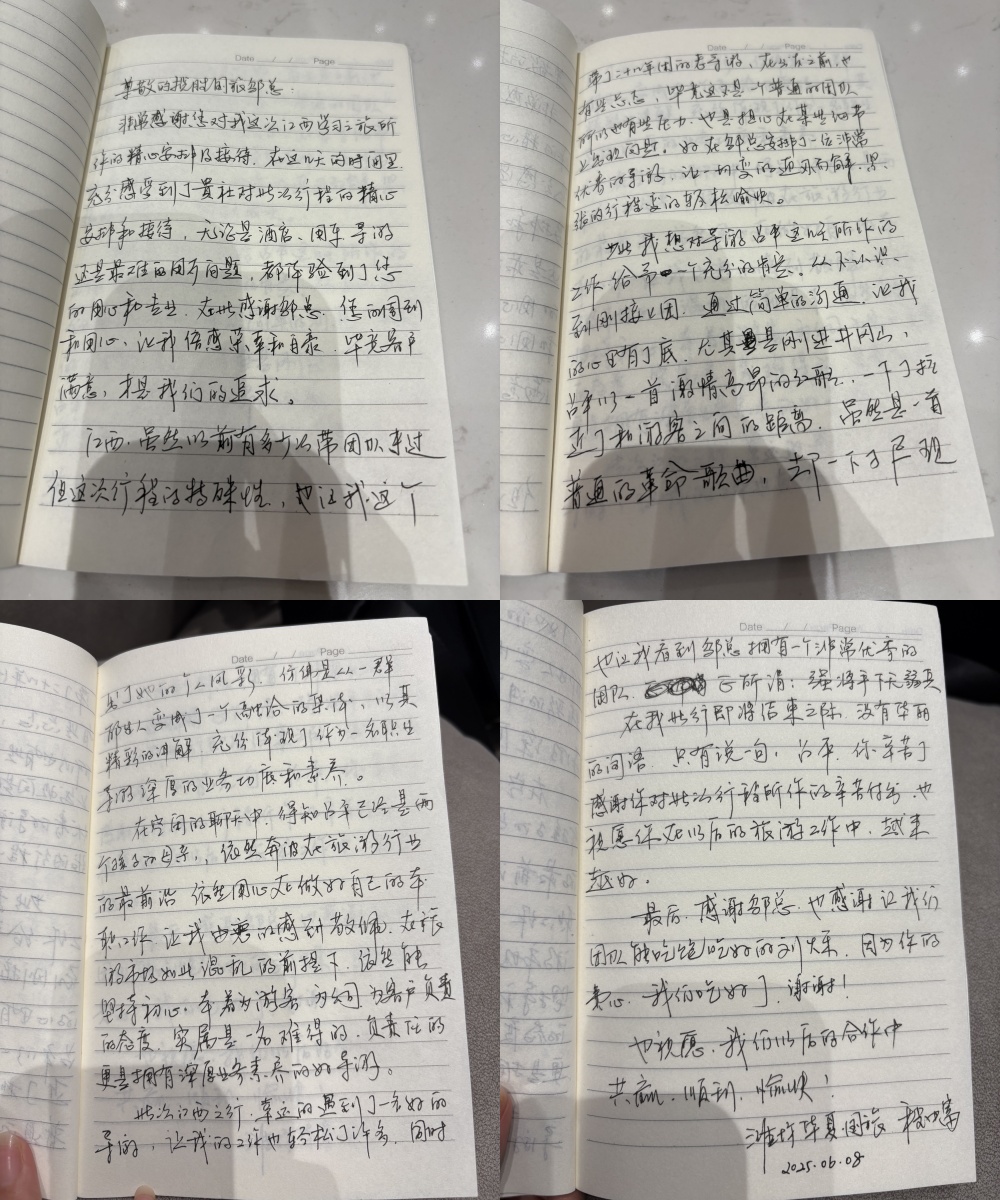 Date / / Page
尊敬的揽胜国旅邹总：
非常感谢您对我这次江西学习之旅所
作的精心安排及接待，在这几天的时间里
充分感受到了贵社对此次行程的精心
安排和接待，无论是酒店、用车、导游
还是最难的用歺问题，都体验到了您
的用心和专业，在此感谢邹总，您的周到
和用心，让我倍感荣幸和自豪，毕竟客户
满意，才是我们的追求。
江西，虽然以前有多少次带团队来过
但这次行程的特殊性，也让我这个
Date / / Page
带了二十八年团的老导游，在出发之前，也
有些忐忑，毕竟这不是一个普通的团队
所以也有些压力，也是担心在某些细节
上出现问题。好在邹总安排了一位非常
优秀的导游，让一切变的迎刃而解，紧
张的行程变的轻松愉快。
为此我想对导游吕平这几天所作的
工作给予一个充分的肯定。从不认识、
到刚接上团，通过简单的沟通，让我
的心里有了底，尤其是刚进井冈山，
吕平以一首激情高昂的红歌，一下子拉
近了和游客之间的距离，虽然是一首
普通的革命歌曲，却一下子尽现
Date / / Page
出了她的个人风彩，仿佛是从一群
陌生人变成了一个高比洽的集体，以其
精彩的讲解，充份体现了作为一名职业
导游深厚的业务功底和素养。
在空闲的聊天中，得知吕平已经是两
个孩子的母亲，依然奔波在旅游行业
的最前沿，依然用心在做好自己的本
职工作，让我由衷的感到敬佩，在旅
游市场如此混乱的前提下，依然能
坚持初心，本着为游客，为公司，为客户负责
的态度，实属是一名难得的，负责任的
更是拥有深厚业务素养的好导游。
此次江西之行，幸运的遇到了一名好的
导游，让我的工作也轻松了许多，同时
Date / / Page
也让我看到邹总拥有一个非常优秀的
团队，正所谓：强将手下无弱兵
在我此行即将结束之际，没有华丽
的词语，只有说一句，吕平，你辛苦了
感谢你对此次行程所作的辛苦付出，也
祝愿你在以后的旅游工作中，越来
越好。
最后，感谢邹总，也感谢让我们
团队能吃饱吃好的刘燥，因为你的
费心，我们吃好了，谢谢！
也祝愿，我们以后的合作中
共赢，顺利，愉快！
潍坊华夏国旅
2025.06.08